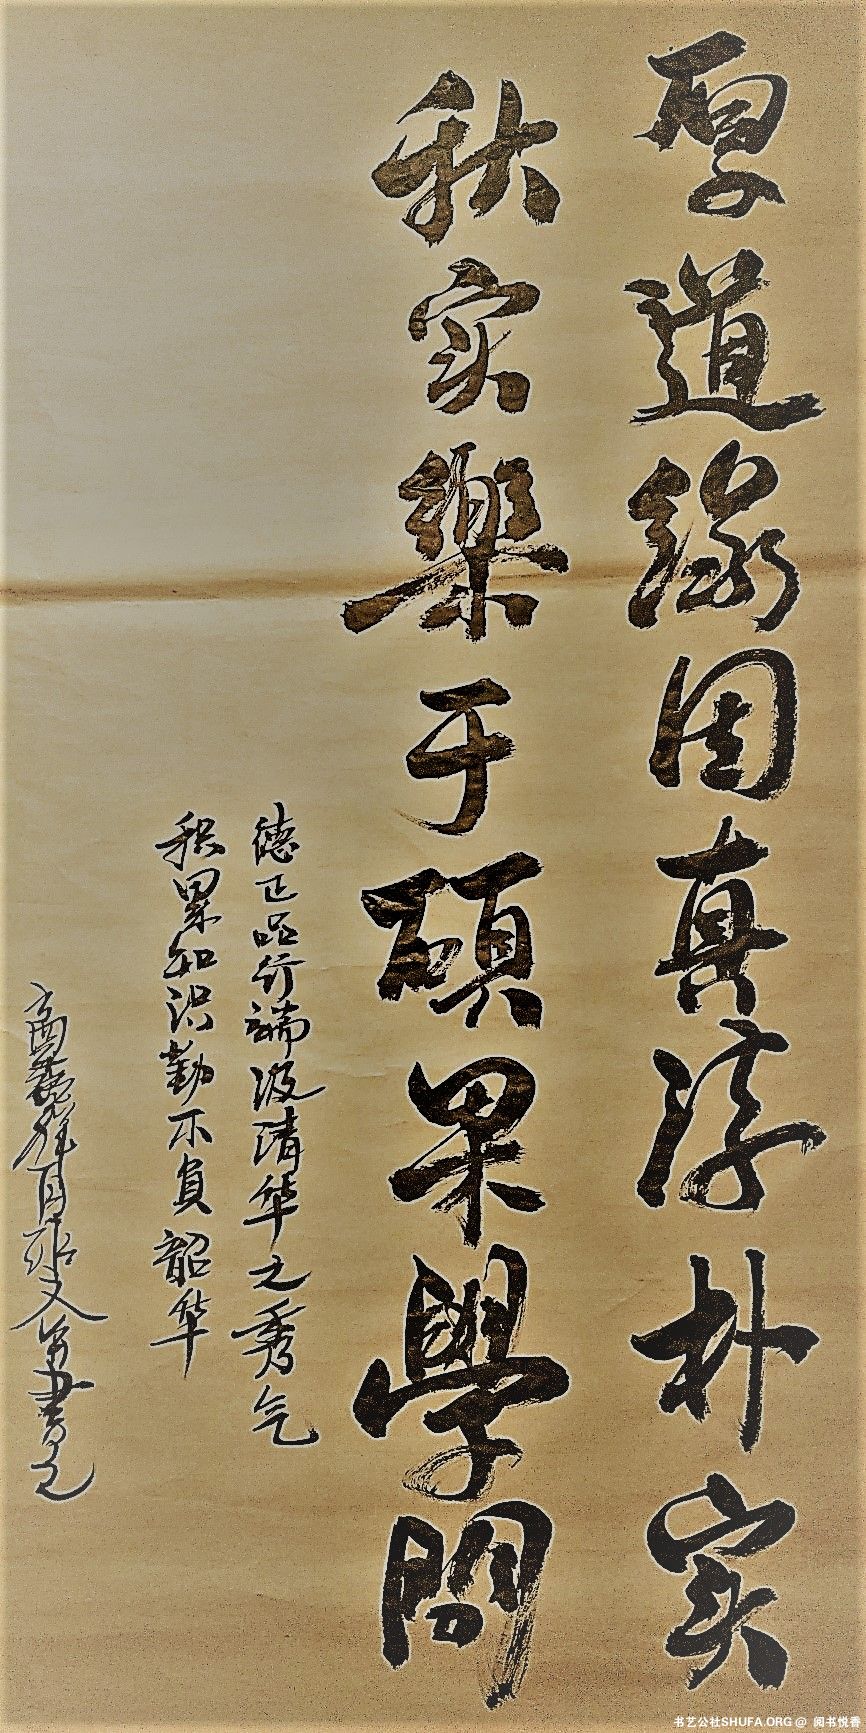 厚道缘因真淳朴实
秋实樂于碩果學問
德正品行端汲清华之秀气
积累知识勤不负韶华
书之
书艺公社SHUFA.ORG @ 阅书悦香